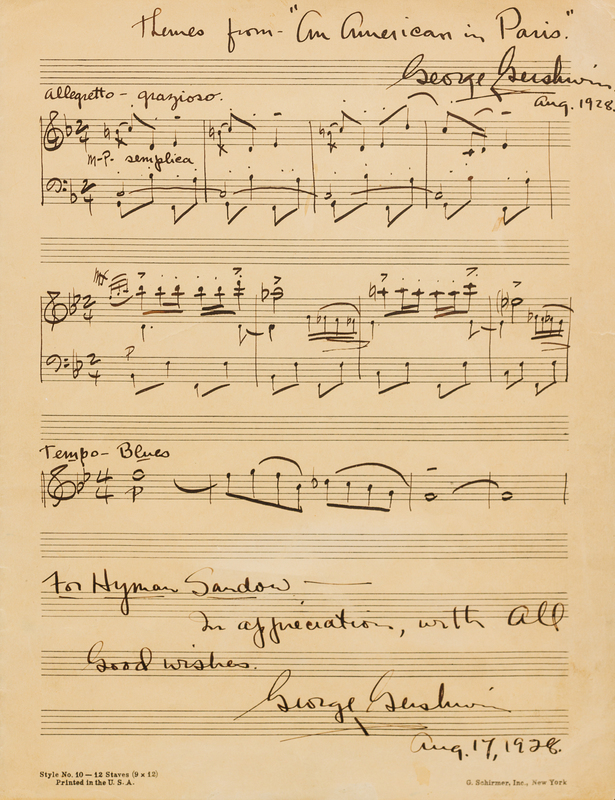 Themes from - "An American in Paris."
George Gershwin
Aug. 1928.
Allegretto - grazioso.
m-P. semplica
mf
P
Tempo - Blues
P
For Hyman Sandow —
In appreciation, with All
Good wishes.
George Gershwin
Aug. 17, 1928.
Style No. 10 — 12 Staves (9 x 12)
Printed in the U. S. A.
G. Schirmer, Inc., New York